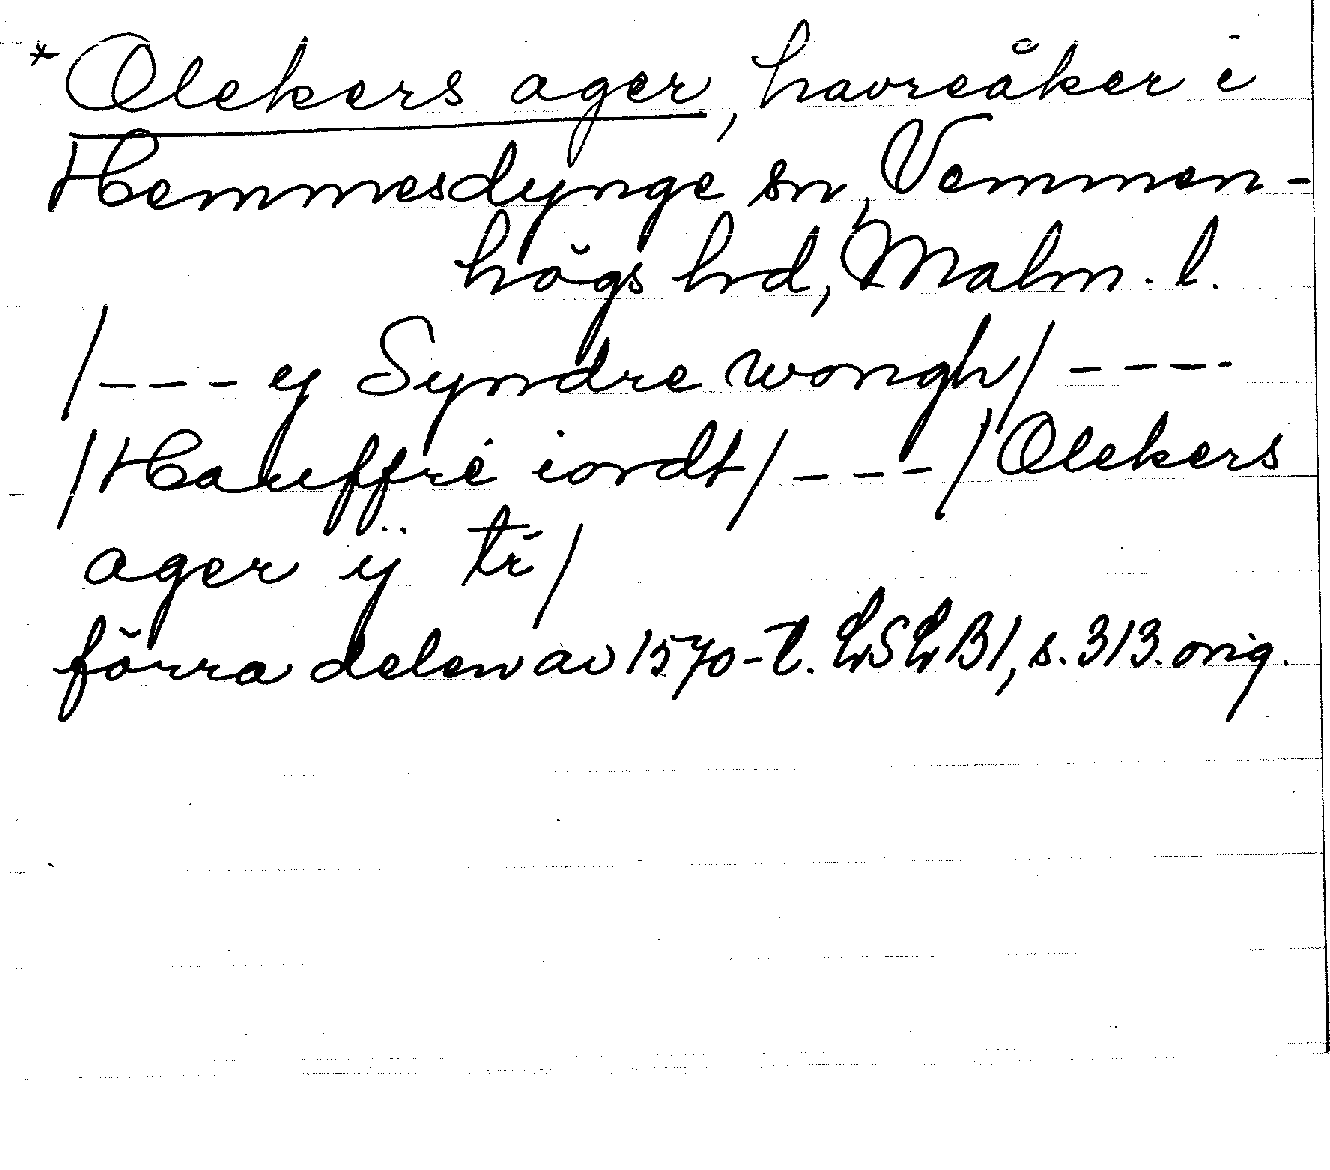 * Olekers ager, havreåker i
Hemmesdynge sn, Vemmen-
högs hd, Malm. l.
/--- ej Syndre wongh/ ----
/Hauffre iordt/ --- /Olekers
ager ij tr/
förra delen av 1570-t. LSLB1, s. 313. orig.